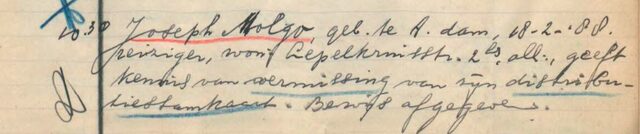 10.30 Joseph Molgo, geb. te A.dam, 18-2-'88.
reiziger, won. Lepelkruisstr. 2 hs, ald., geeft
kennis van vermissing van zijn distribu-
tiestamkaart. Bewijs afgegeven.